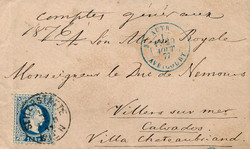 comptes généraux
1876
A Son Altesse Royale
Monseigneur le Duc de Nemours
Villers sur mer
Calvados
Villa Chateaubriand
AVRICOURT